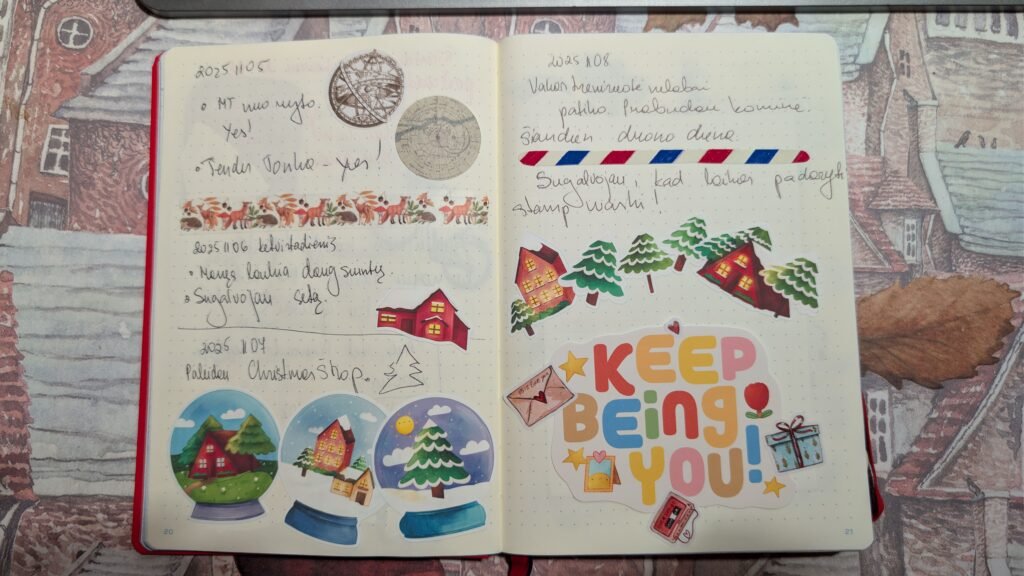 2025 11 05
• MT nuo ryto.
Yes!
• Tender Tonka - yes!
2025 11 06 ketvirtadienis
• Manęs laukia daug siuntų.
• Sugalvojau
2025 11 07
Paleidau Christmas Shop.
20
2025 11 08
Vakar treniruotė labai
patiko. Prabudau
Šiandien drono diena.
Sugalvojau, kad laikas padaryti
stamp washi.
KEEP
BEING
YOU!
21